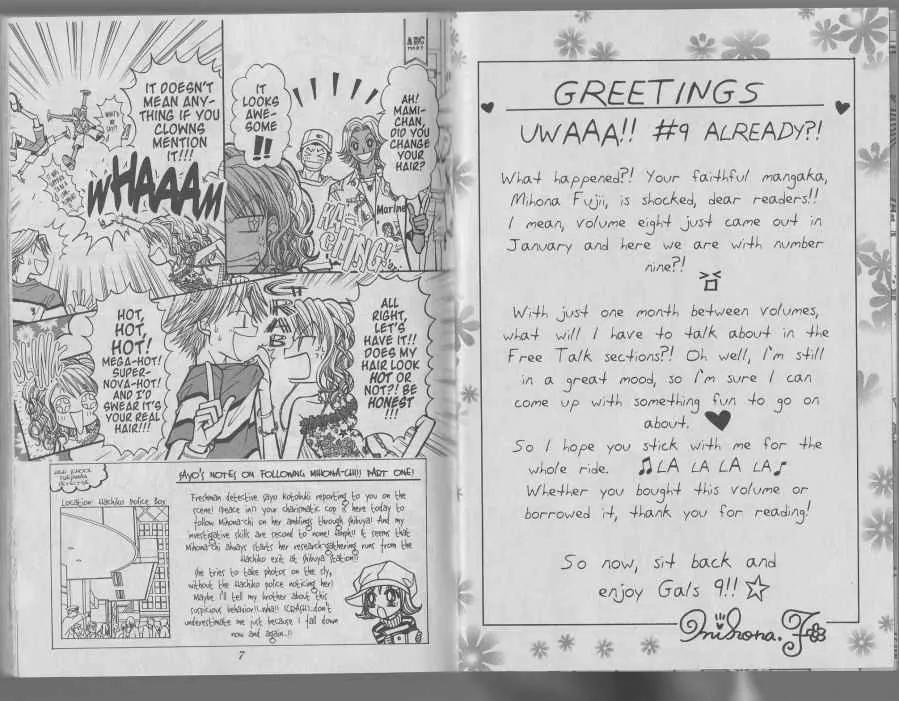 ABC
MART
AH!
MAMI-
CHAN,
DID YOU
CHANGE
YOUR
HAIR?
IT
LOOKS
AWE-
SOME
!!
Marine
CHING!
IT DOESN'T
MEAN ANY-
THING IF YOU
CLOWNS
MENTION
IT!!!
WHAAAM
ALL
RIGHT,
LET'S
HAVE IT!!
DOES MY
HAIR LOOK
HOT OR
NOT?! BE
HONEST
!!!
GRAB
HOT,
HOT,
HOT!
MEGA-HOT!
SUPER-
NOVA-HOT!
AND I'D
SWEAR IT'S
YOUR REAL
HAIR!!!
SAYO'S NOTES ON FOLLOWING MIHONA-CHI!! PART ONE!
HIGH SCHOOL
DETECTIVE
Location: Hachiko Police Box
Freshman detective Sayo Kotobuki reporting to you on the
scene! (peace in!) Your charismatic cop is here today to
follow Mihona-chi on her amblings through Shibuya! And my
investigative skills are second to none! (ahem!) It seems that
Mihona-chi always starts her research-gathering runs from the
Hachiko exit at Shibuya Station!!
She tries to take photos on the sly,
without the Hachiko police noticing her!
Maybe I'll tell my brother about this
suspicious behavior!!..wha!! (CRASH)..don't
underestimate me just because I fall down
now and again..!!
7
GREETINGS
UWAAA!! #9 ALREADY?!
What happened?! Your faithful mangaka,
Mihona Fujii, is shocked, dear readers!!
I mean, volume eight just came out in
January and here we are with number
nine?!
With just one month between volumes,
what will I have to talk about in the
Free Talk sections?! Oh well, I'm still
in a great mood, so I'm sure I can
come up with something fun to go on
about. ♥
So I hope you stick with me for the
whole ride. ♫LA LA LA LA♪
Whether you bought this volume or
borrowed it, thank you for reading!
So now, sit back and
enjoy Gals 9!! ☆
Mihona. F